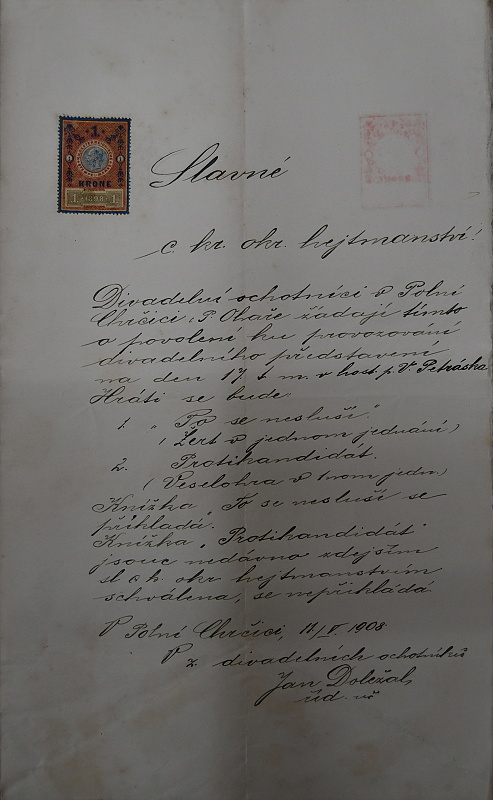 1
KRONE
1 1
Slavné
c. kr. okr. hejtmanství!
Divadelní ochotníci v Polní
Chrčici, P. Obaře žádají tímto
o povolení ku provozování
divadelního představení
na den 17. t. m. v host. p. V. Petráska
Hráti se bude:
1. „To se nesluší."
(Žert v jednom jednání)
2. Protikandidát.
(Veselohra v 1nom jedn.)
Knížka „To se nesluší se
přikládá.
Knížka „Protikandidát"
jsouc nedávno zdejším
sl. c. k. okr. hejtmanstvím
schválena, se nepřikládá.
V Polní Chrčici, 11/V. 1908
V z. divadelních ochotníků
Jan Doležal,
úd. uč